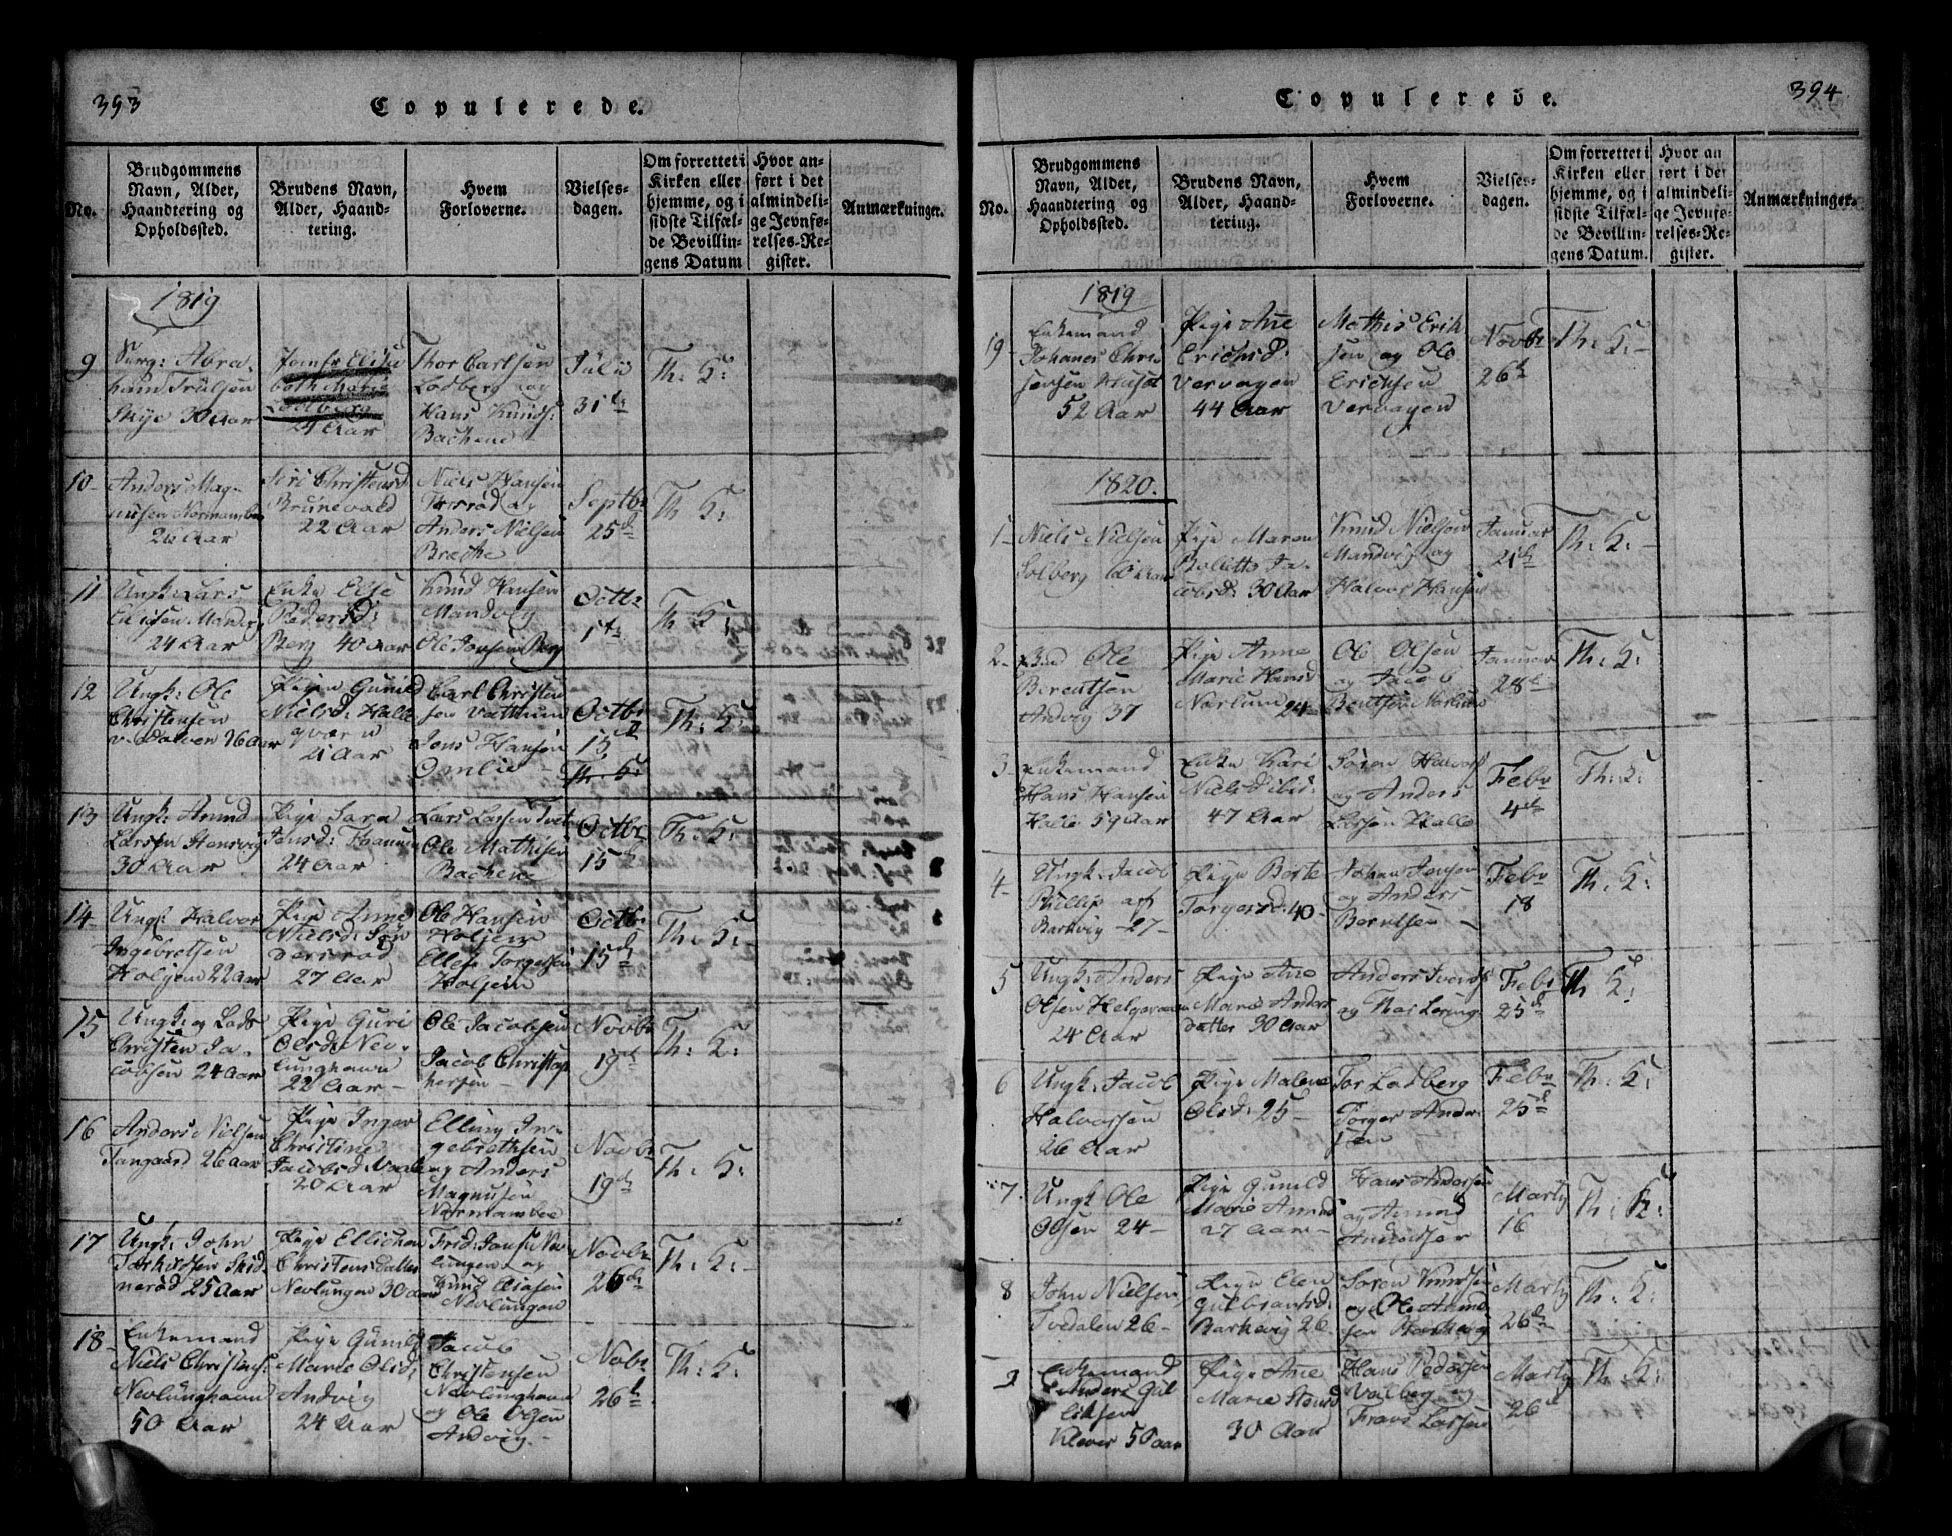 393
Copulerede.
No.
Brudgommens
Navn, Alder,
Haandtering og
Opholdssted.
Brudens Navn,
Alder, Haand-
tering.
Hvem
Forloverne.
Vielses-
dagen.
Om forrettet i
Kirken eller
hjemme, og i
sidste Tilfæl-
de Bevillin-
gens Datum
Hvor an-
ført i det
almindeli-
ge Jevnfø-
relses-Re-
gister.
Anmærkninger.
1819
9
Abra
ham Trulsen
30 Aar
24 Aar
Thor Carlsen
Lodberg og
Hans Knuds:
Bachene
Julii
31
Th: K:
10
Anders Mag-
nusen
26 Aar
Siri Christensd
Brunevald
22 Aar
Niels Hansen
og
Anders Nielsen
Breche
Septbr
25
Th: K:
11
Ungk: Lars
24 Aar
Enke Else
Pedersd:
Berg 40 Aar
Knud Hansen
Mandvig
Ole Jonsen Berg
Octbr
1
Th: K:
12
Ungk: Ole
Christensen
26 Aar
Pigen Gunild
Nielsd: Halle
21 Aar
Carl Christen
sen
Jens Hansen
Omlie
Octbr
15
Th: K:
Th: K:
13
Ungk: Amund
Larsen Stensvig
30 Aar
Pige Sara
24 Aar
Lars Larsen
Ole Mathisen
Bachene
Octbr
15
Th: K:
14
Ungk: Halvor
Ingebretsen
Holjem 22 Aar
Pige Anne
Nielsd:
27 Aar
Ole Hansen
Holjem
Ellef Torgersen
Holjem
Octbr
15
Th: K:
15
Ungk: og Lods
Christen Ja-
cobsen 24 Aar
Pige Guri
Olsd: Nev-
lunghavn
22 Aar
Ole Jacobsen
Jacob Christop
hersen
Novbr
19
Th: K:
16
Anders Nielsen
Fangaard 26 Aar
Pige Inger
Christine
Jacobsd:
20 Aar
Elling In-
gebrethsen
og Anders
Magnusen
Novbr
19
Th: K:
17
Ungk: John
25 Aar
Pige
Christensdatter
Nevlungen 30 Aar
Frid: Jansen Nev
lungen og
Knud Eliasen
Nevlungen
Novbr
26
Th: K:
18
Enkemand
Niels Christens:
Nevlunghavn
50 Aar
Pige Gunild
Marie Olsd:
Andvig
24 Aar
Jacob
Christensen
Nevlunghavn
og Ole Olsen
Andvig
Novbr
26
Th: K:
394
Copulerede.
No.
Brudgommens
Navn, Alder,
Haandtering og
Opholdssted.
Brudens Navn,
Alder, Haand-
tering.
Hvem
Forloverne.
Vielses-
dagen.
Om forrettet i
Kirken eller
hjemme, og i
sidste Tilfæl-
de Bevillin-
gens Datum.
Hvor an
ført i det
almindeli-
ge Jevnfø-
relses-Re-
gister.
Anmærkninger.
1819
19
Enkemand
Johanes Chris
52 Aar
Pige Ane
Erichsd:
Vervagen
44 Aar
Mathis Erik
sen og Ole
Erichsen
Vervagen
Novbr
26
Th: K:
1820.
1
Niels Nielsen
Solberg
Pige Maren
Bolette Ja-
cobsd: 30 Aar
Knud Nielsen
Mandvig og
Halvor Hansen
Januar
21
Th: K:
2
Ole
Berentsen
Andvig 37
Pige Anne
Marie Hansd
Narlum 24
Ole Olsen
og Jacob
Bentsen Narlum
Januar
28
Th: K:
3
Enkemand
Hans Hansen
Halle 59 Aar
Enke Kari
47 Aar
Sören Halvors
og Anders
Larsen Halle
Febr
4
Th: K:
4
Ungk: Jacob
Phillip af
Barkvig 27
Pige Borte
Torgersd: 40
Johan Jonsen
og Anders
Berntsen
Febr
18
Th: K:
5
Ungk: Anders
Olsen Helgeroaen
24 Aar
Pige Ane
Marie Anders
datter 30 Aar
Anders Svends
og Thor
Febr
25
Th: K:
6
Ungk: Jacob
Halvorsen
26 Aar
Pige Malene
Olsd: 25
Tor Lodberg
Torger Ander-
sen
Febr
25
Th: K:
7
Ungk Ole
Olsen 24
Pige Gunild
Marie
27 Aar
Hans Andersen
og Amund
Marty
16
Th: K:
8
John Nielsen
Tvedalen 26
Pige Elen
Gulbrantsd:
Barkevig 26
Sören Knudsen
og Ole Amund
sen Barkevig
Marty
26
Th: K:
9
Enkemand
Anders Gul
liksen
Klever 50 aar
Pige Ane
Marie
30 Aar
Hans Pedersen
Valberg og
Frans Larsen
Marty
26
Th: K: